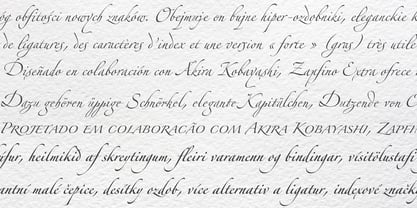 óg obfitości nowych znaków. Obejmuje on bujne hiper-ozdobniki, eleganckie k
de ligatures, des caractères d'index et une version « forte » (gras) très utile
Diseñado en colaboración con Akira Kobayashi, Zapfino Extra ofrece
Dazu gehören üppige Schnörkel, elegante Kapitälchen, Dutzende von
PROJETADO EM COLABORAÇÃO COM AKIRA KOBAYASHI, ZAPFI
ifur, heilmikid af skreytingum, fleiri varamenn og bindingar, visitölustaf
antní malé čepice, desítky ozdob, více alternativ a ligatur, indexové značk